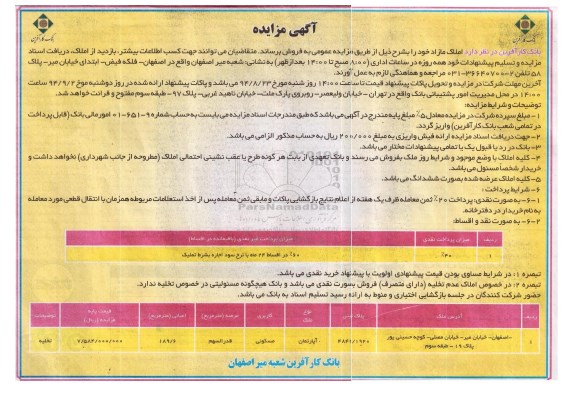 آگهی مزایده
بانک کارآفرین
بانک کارآفرین
بانک کارآفرین در نظر دارد املاک مازاد خود را بشرح ذیل از طریق مزایده عمومی به فروش برساند. متقاضیان می توانند جهت کسب اطلاعات بیشتر، بازدید از املاک، دریافت اسناد
مزایده و تسلیم پیشنهادات خود همه روزه در ساعات اداری (۸:۰۰ صبح تا ۱۴:۰۰ بعدازظهر) به نشانی: شعبه میر اصفهان واقع در اصفهان- فلکه فیض- ابتدای خیابان میر- پلاک
۵۸ تلفن ۲-۳۶۶۴۰۷۰۰-۰۳۱ مراجعه و هماهنگی لازم به عمل آورند.
آخرین مهلت شرکت در مزایده و تحویل پاکات پیشنهاد قیمت تا ساعت ۱۴:۰۰ روز شنبه مورخ ۹۴/۸/۲۳ می باشد و پاکات پیشنهاد ارائه شده در روز دوشنبه مورخ ۹۴/۹/۲ ساعت
۱۴:۰۰ در محل مدیریت امور پشتیبانی بانک واقع در تهران - خیابان ولیعصر- روبروی پارک ملت- خیابان ناهید غربی- پلاک ۹۷- طبقه سوم مفتوح و قرائت خواهد شد.
توضیحات و شرایط مزایده:
۱- مبلغ سپرده شرکت در مزایده معادل ۵٪ مبلغ پایه مندرج در آگهی می باشد که طبق مندرجات اسناد مزایده می بایست به حساب شماره ۹۰-۶۵۱-۰۱ امور مالی بانک (قابل پرداخت
در تمامی شعب بانک کارآفرین) واریز گردد.
۲- جهت دریافت اسناد مزایده ارائه فیش واریزی به مبلغ ۲۰۰/۰۰۰ ریال به حساب مذکور الزامی می باشد.
۳- بانک در رد یا قبول یک یا تمامی پیشنهادات مختار می باشد.
۴- کلیه املاک با وضع موجود و شرایط روز ملک بفروش می رسند و بانک تعهدی از بابت هر گونه طرح یا عقب نشینی احتمالی املاک (مطروحه از جانب شهرداری) نخواهد داشت و
خریدار شخصاً مسئول می باشد.
۵- کلیه املاک عرضه شده بصورت ششدانگ می باشد.
۶- شرایط پرداخت:
۱-۶- به صورت نقدی: پرداخت ۲۰٪ ثمن معامله ظرف یک هفته از اعلام نتایج بازگشایی پاکات و مابقی ثمن معامله پس از اخذ استعلامات مربوطه همزمان با انتقال قطعی مورد معامله
به نام خریدار در دفترخانه.
۲-۶- به صورت نقد و اقساط:
ردیف میزان پرداخت نقدی میزان پرداخت غیر نقدی (باقیمانده در اقساط)
۱ ۴۰٪ ۶۰٪ در اقساط ۲۴ ماه با نرخ سود اجاره بشرط تملیک
تبصره ۱: در شرایط مساوی بودن قیمت پیشنهادی اولویت با پیشنهاد خرید نقدی می باشد.
تبصره ۲: در خصوص املاک عدم تخلیه (دارای متصرف) فروش بصورت نقدی می باشد و بانک هیچگونه مسئولیتی در خصوص تخلیه ندارد.
حضور شرکت کنندگان در جلسه بازگشایی اختیاری و منوط به ارائه رسید تسلیم اسناد به بانک می باشد.
ردیف آدرس ملک پلاک ثبتی نوع ملک کاربری عرصه (مترمربع) اعیانی (مترمربع) قیمت پایه مزایده (ریال) توضیحات
۱ -اصفهان- خیابان میر- خیابان مصلی- کوچه حسینی پور پلاک ۱۹- طبقه سوم ۴۸۴۱/۱۹۷۰ آپارتمان مسکونی قدرالسهم ۱۸۹/۶ ۷/۵۸۴/۰۰۰/۰۰۰ تخلیه
بانک کارآفرین شعبه میر اصفهان
ParsNamadData